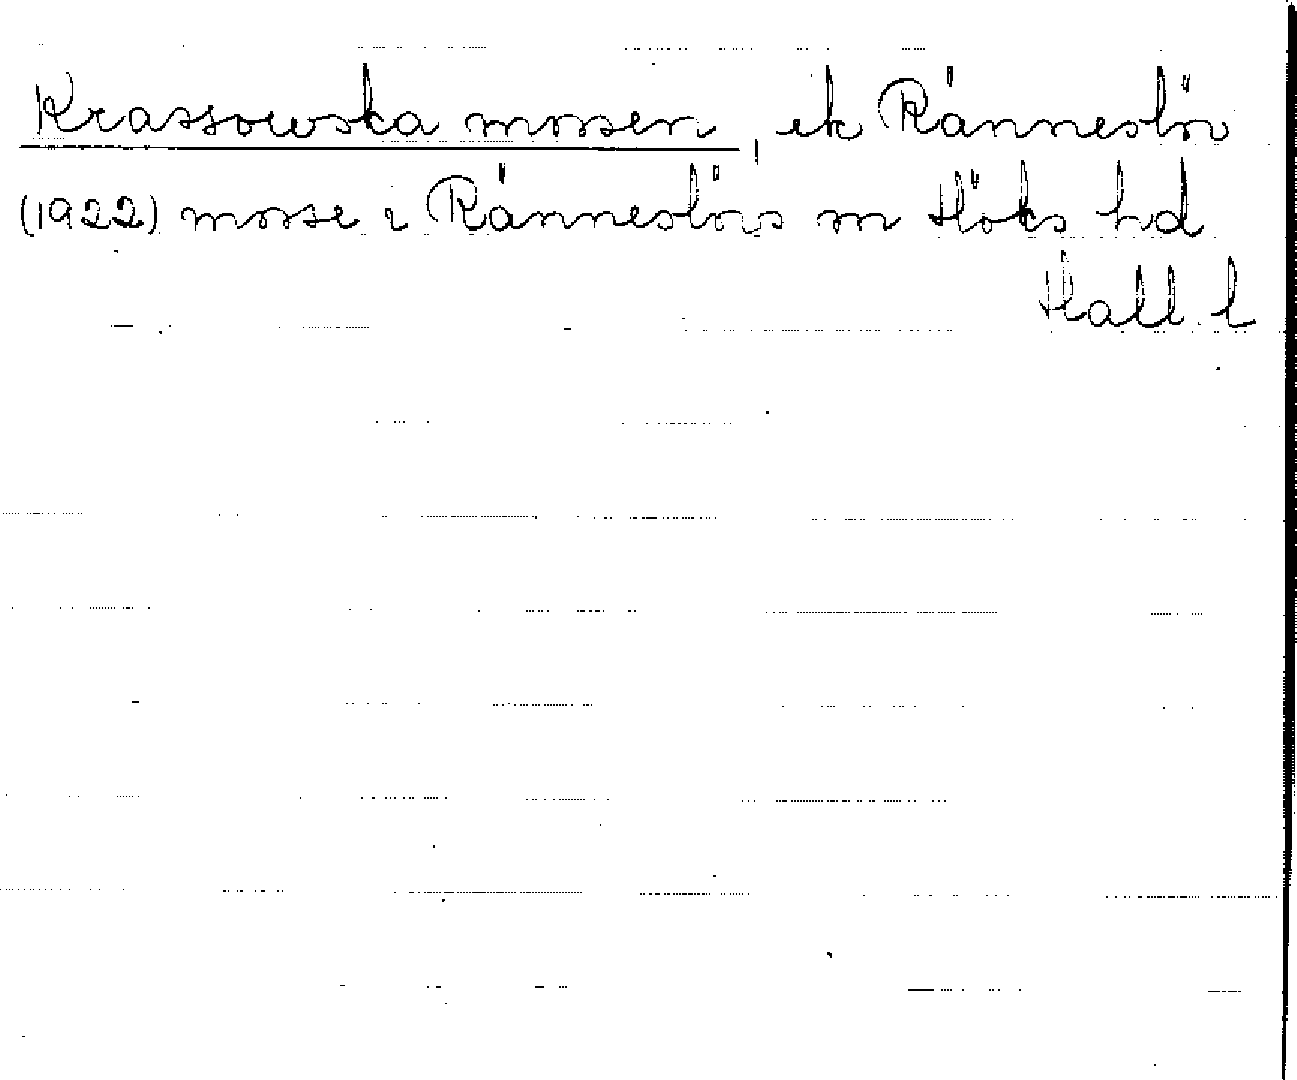 Krassowska mossen, ek Ränneslöv
(1922) mosse i Ränneslövs sn Höks hd
Hall. l